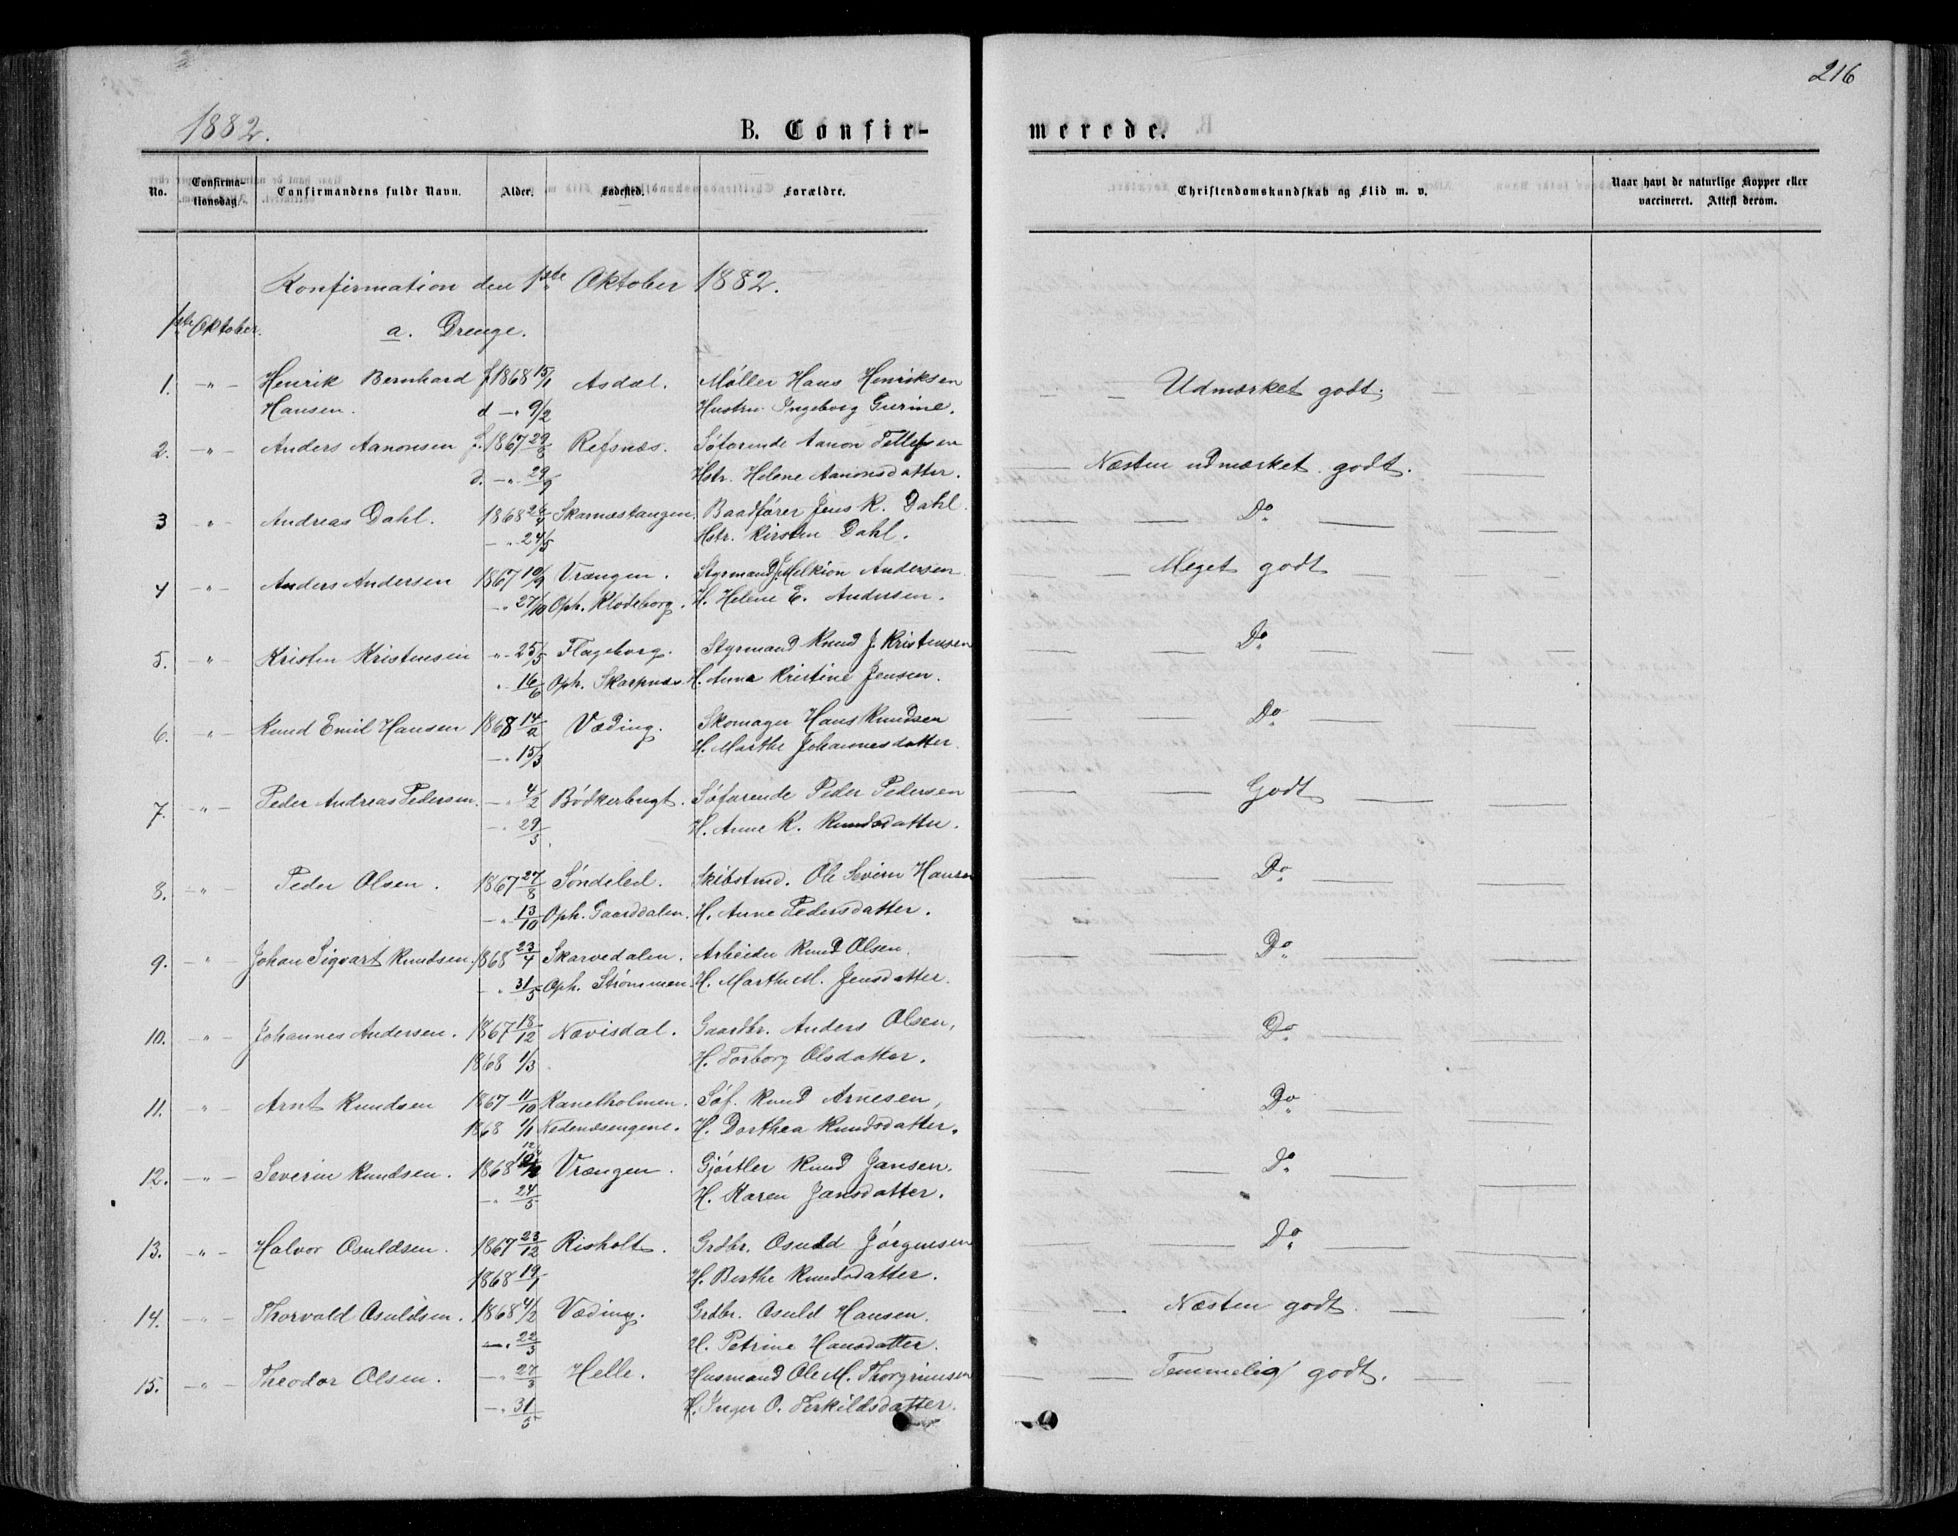 216
1882.
B. Confir-
merede.
No.
Confirma-
tionsdag
Confirmandens fulde Navn.
Alder.
Fødested.
Forældre.
Christendomskundskab og Flid m. v.
Naar havt de naturlige Kopper eller
vaccineret. Attest derom.
Konfirmation den 1ste Oktober 1882.
1ste Oktober. a. Drenge.
1. -"- Henrik Bernhard f 1868 15/1 Asdal. Møller Hans Henriksen Udmærket godt.
Hansen. d -" 9/2 Hustru Ingeborg Gurine.
2. -"- Anders Aanonsen f. 1867 29/8 Refsnæs. Søfarende Aanon Tellefsen Næsten udmærket godt.
d. -" 29/9 Hstr. Helene Aanonsdatter.
3 " Andreas Dahl. 1868 26/4 Skarnæstangen. Baadfører Jens K. Dahl Do
-" 24/5 Hstr. Kirsten Dahl.
4 -"- Anders Andersen 1867 10/9 Vrængen. Styrmand J Melkior Andersen Meget godt
-" 27/10 Oph. Klodeborg. H. Helene E. Andersen.
5. " Kristen Kristensen " 25/5 Flageborg. Styrmand Knud J. Kristensen Do
" 16/6 Oph. Skarpnæs H. Anna Kristine Jensen.
6. " Knud Emil Hansen 1868 14/2 Væding. Skomager Hans Knudsen Do
-" 15/3 H. Marthe Johannesdatter.
7. "- Peder Andreas Pedersen. -" 4/2 Bødkerbugt. Søfarende Peder Pedersen Godt
-" 29/5 H. Anne K. Knudsdatter.
8. -"- Peder Olsen. 1867 27/8 Søndeled. Skibstmd. Ole Severin Hansen Do
-" 13/10 Oph. Gaarddalen. H. Anne Pedersdatter.
9. "- Johan Sigvart Knudsen. 1868 23/4 Skarvedalen. Arbeider Knud Olsen. Do
-" 31/5 Oph. Strømmen. H. Marthe M. Jensdatter.
10. -"- Johannes Andersen. 1867 18/12 Nævisdal. Gaardbr. Anders Olsen, Do
1868 1/3 H. Torborg Olsdatter.
11. "- Arnt Knudsen 1867 11/10 Kanelholmen. Søf. Knud Arnesen, Do
1868 1/1 Nedenæsengene. H. Dorthea Knudsdatter.
12. -"- Severin Knudsen. 1868 Vrængen. Gjørtler Knud Jansen. Do
-" 24/5 H. Karen Jansdatter.
13. "- Halvor Osuldsen. 1867 23/12 Risholt. Grdbr. Osuld Jørgensen Do
1868 19/1 H. Berthe Knudsdatter.
14. -"- Thorvald Osuldsen. 1868 4/2 Væding. Grdbr. Osuld Hansen. Næsten godt.
-" 22/3 H. Petrine Hansdatter.
15. -"- Theodor Olsen. -" 27/3 Helle. Husmand Ole M. Thorgrimsen Temmelig godt.
-" 31/5 H. Inger O. Terkildsdatter.